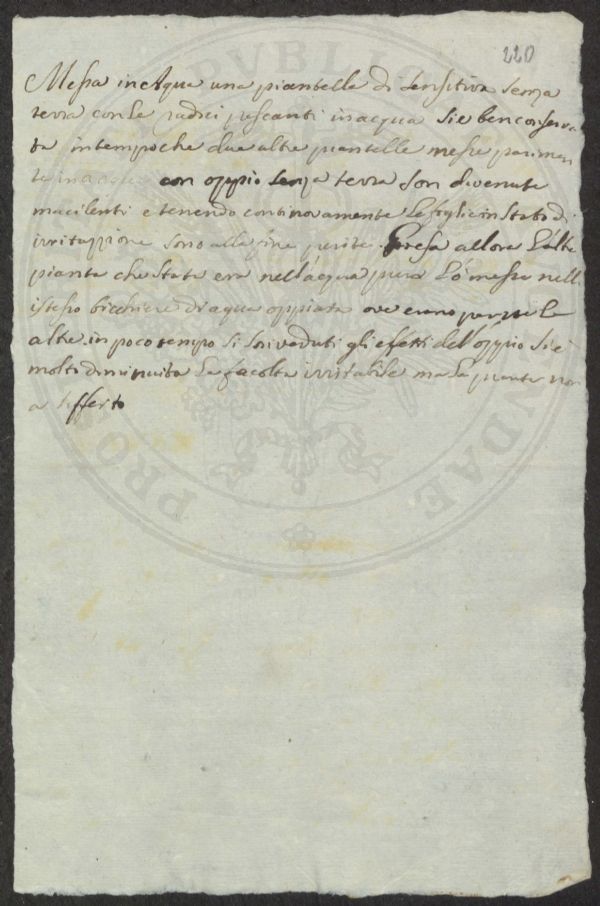 220
Messa in Aqua una piantella di sensitiva senza
terra con le radici pescanti in acqua si è ben conserva
ta in tempo che due altre piantelle messe parimen
te in acqua con oppio senza terra son divenute
macilenti e tenendo continovamente le foglie in stato di
irritazzione sono alla fine perite. Presa allora l'altra
pianta che stata era nell'acqua pura l'ò messa nell
istesso bicchiere di aqua oppiata ove erano perite le
altre in poco tempo si son veduti gli effetti dell'oppio si è
molto diminuita la facoltà irritabile ma la pianta non
a sofferto
PUBLICAE
PROS
UNDAE